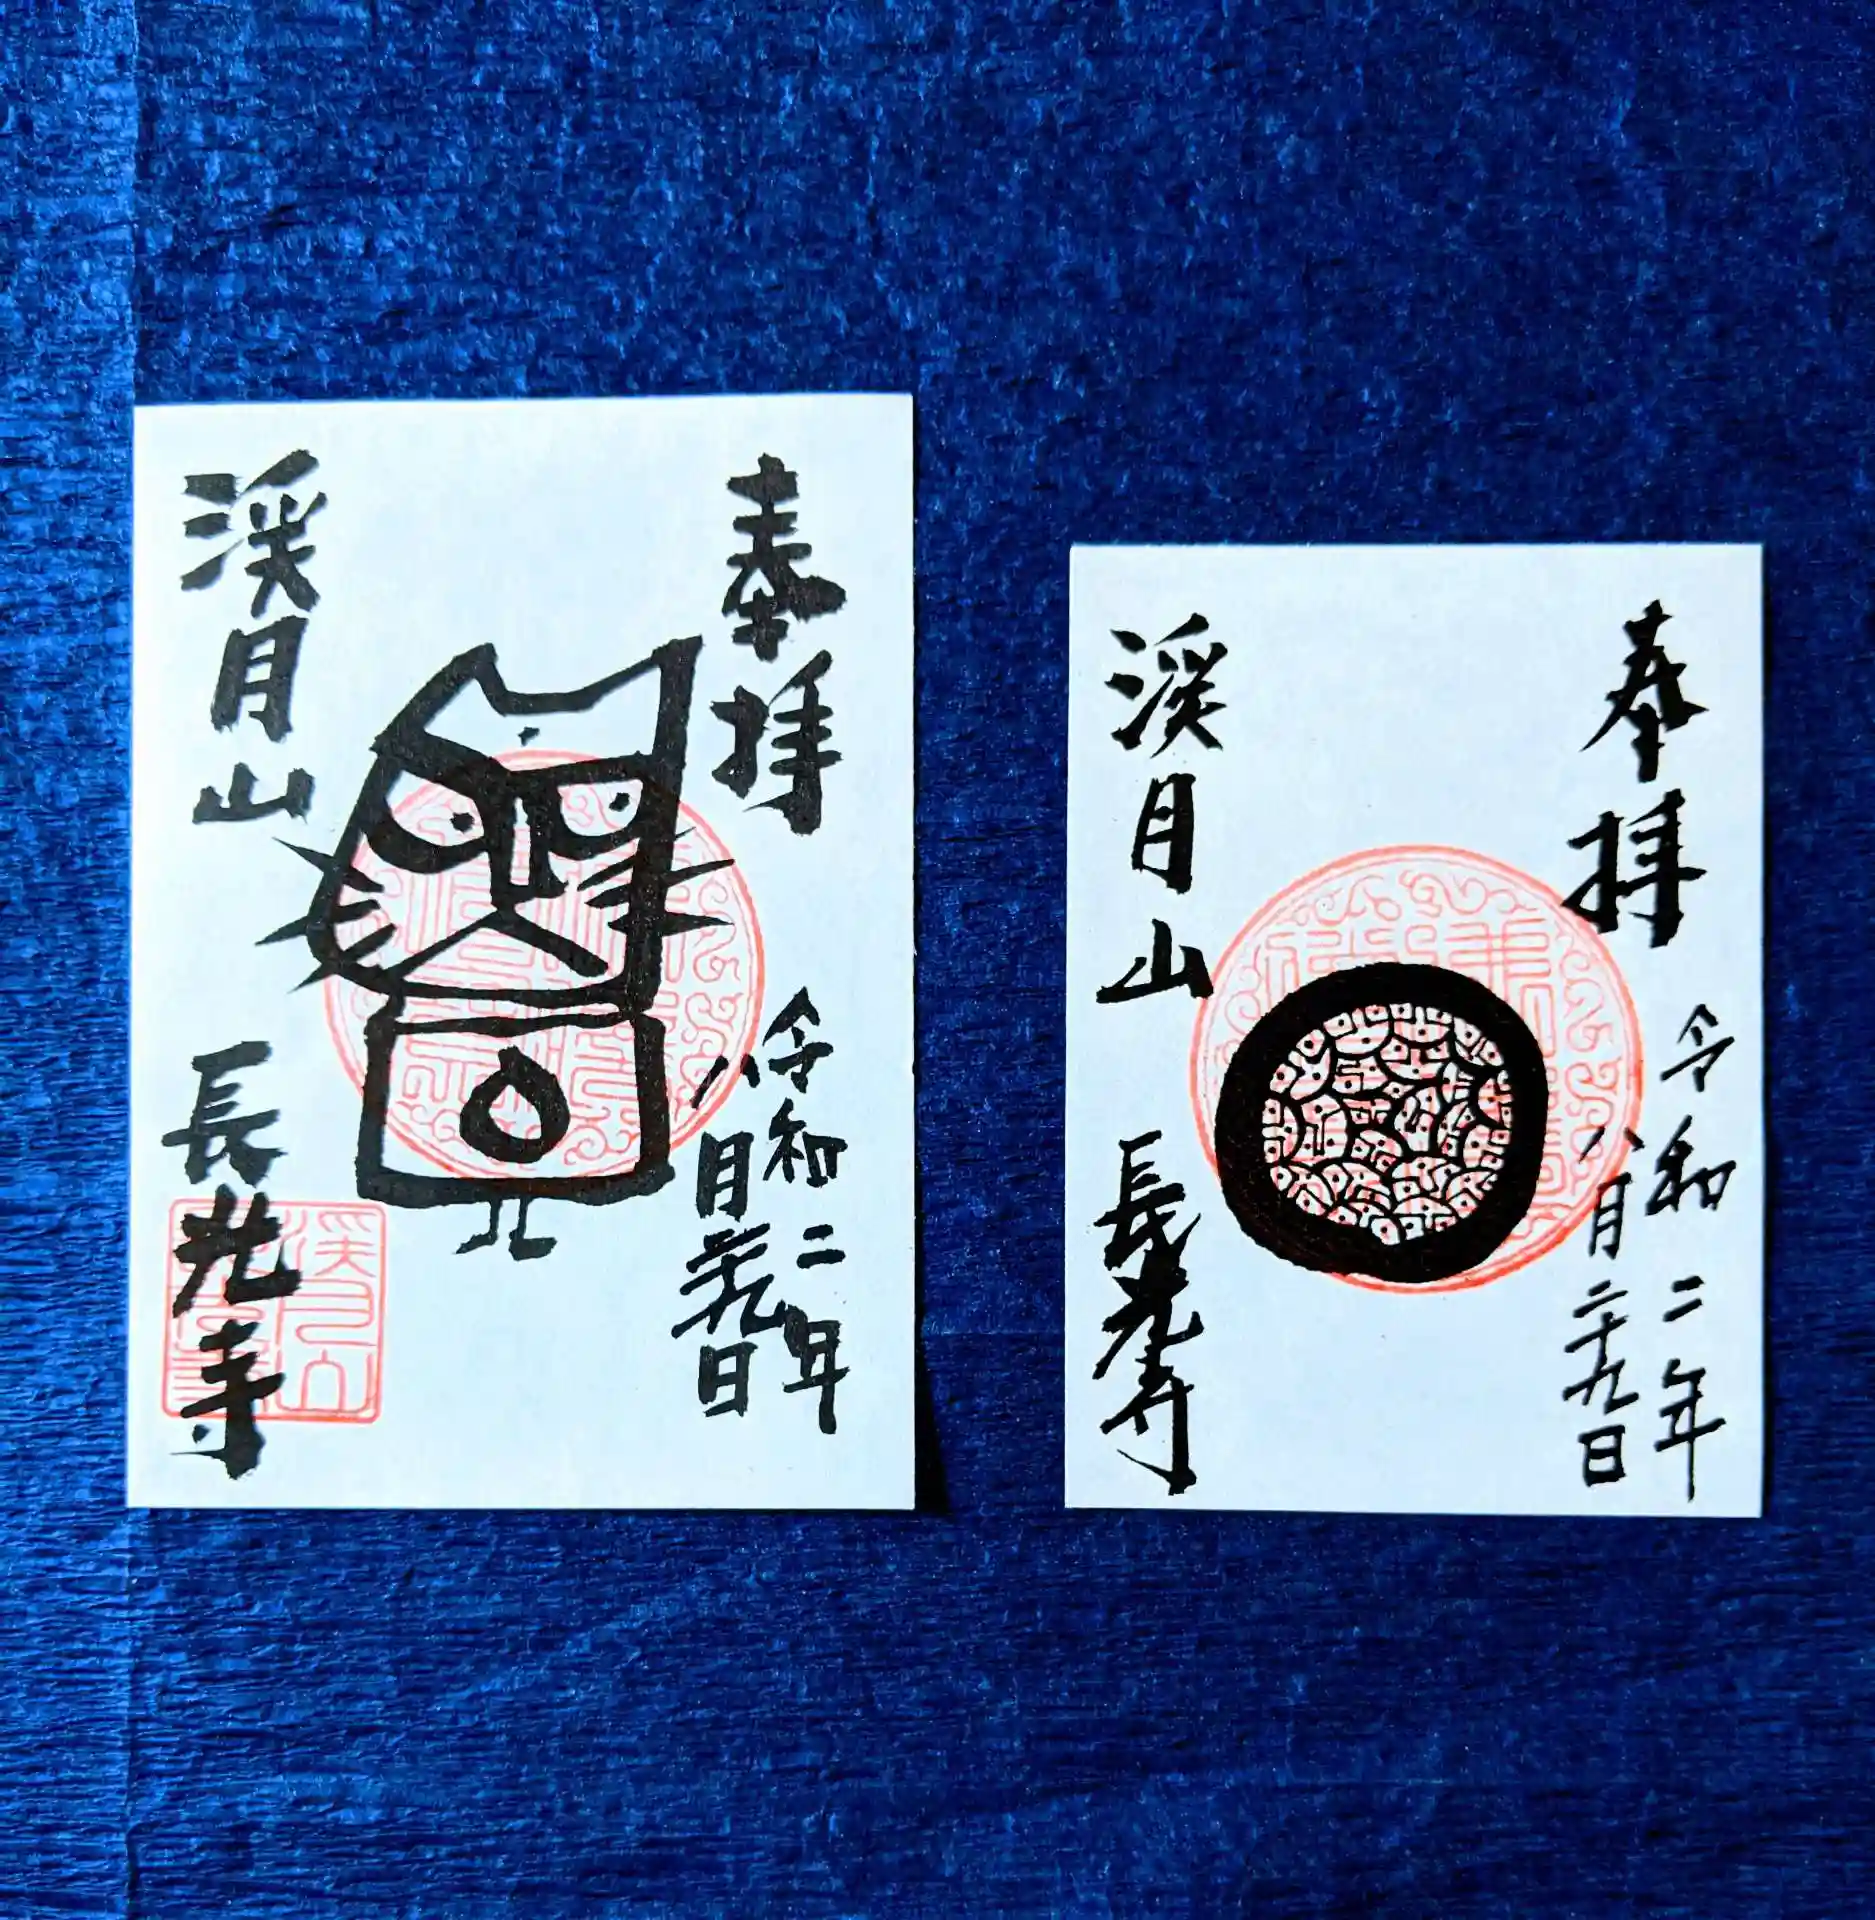 奉拝
令和二年
八月廿九日
渓月山
長光寺
奉拝
令和二年
八月二十九日
渓月山
長光寺